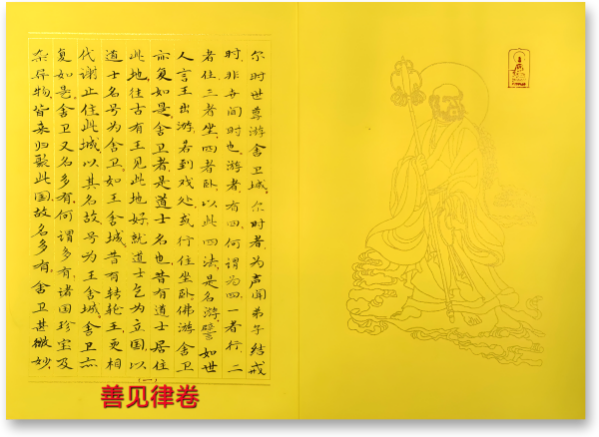 尔时世尊游舍卫城,尔时者,为声闻弟子结戒
时,非无间时也,游者有四,何谓为四,一者行,二
者住,三者坐,四者卧,以此四法,是名游,譬如世
人言王出游,若到戏处,或行住坐卧,佛游舍卫
亦复如是,舍卫者,是道士名也,昔有道士居住
此地,往古有王见此地好,就道士乞为立国,以
道士名号为舍卫,如王舍城,昔有转轮王更相
代谢止住此城,以其名故,号为王舍城,舍卫亦
复如是,舍卫又名多有,何谓多有,诸国珍宝及
杂异物,皆来归聚此国,故名多有,舍卫甚微妙,
(一)
善见律卷